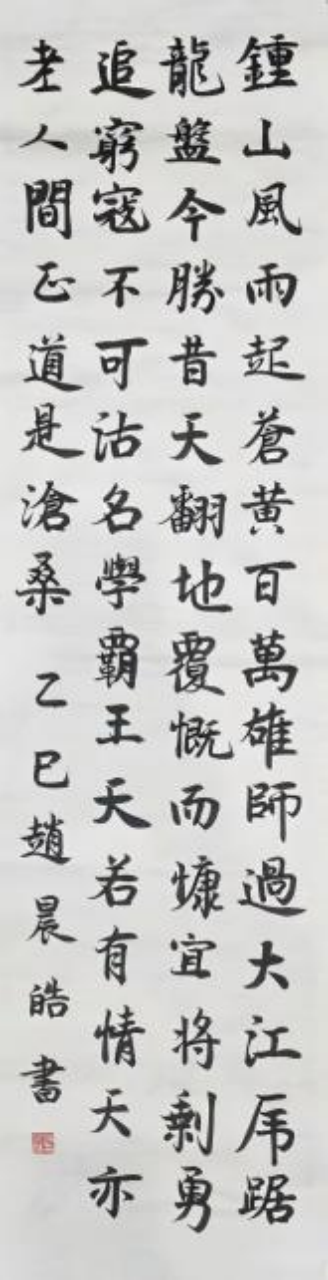 鍾山風雨起蒼黄百萬雄師過大江虎踞
龍盤今勝昔天翻地覆慨而慷宜将剩勇
追窮寇不可沽名學霸王天若有情天亦
老人間正道是滄桑
乙巳趙晨皓書